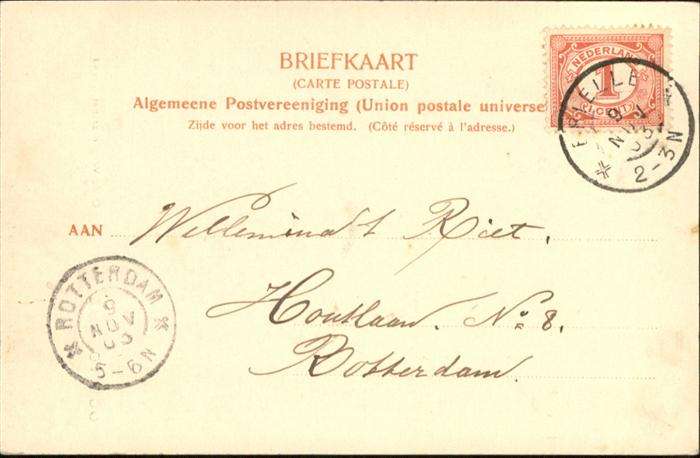 BRIEFKAART
(CARTE POSTALE)
Algemeene Postvereeniging (Union postale universelle)
Zijde voor het adres bestemd. (Côté réservé à l'adresse.)
NEDERLAND
1
CENT
9
NOV
03
2-3N
AAN Willemina Riet,
Houtlaan. No 8.
Rotterdam.
ROTTERDAM
9
NOV
03
5-6N